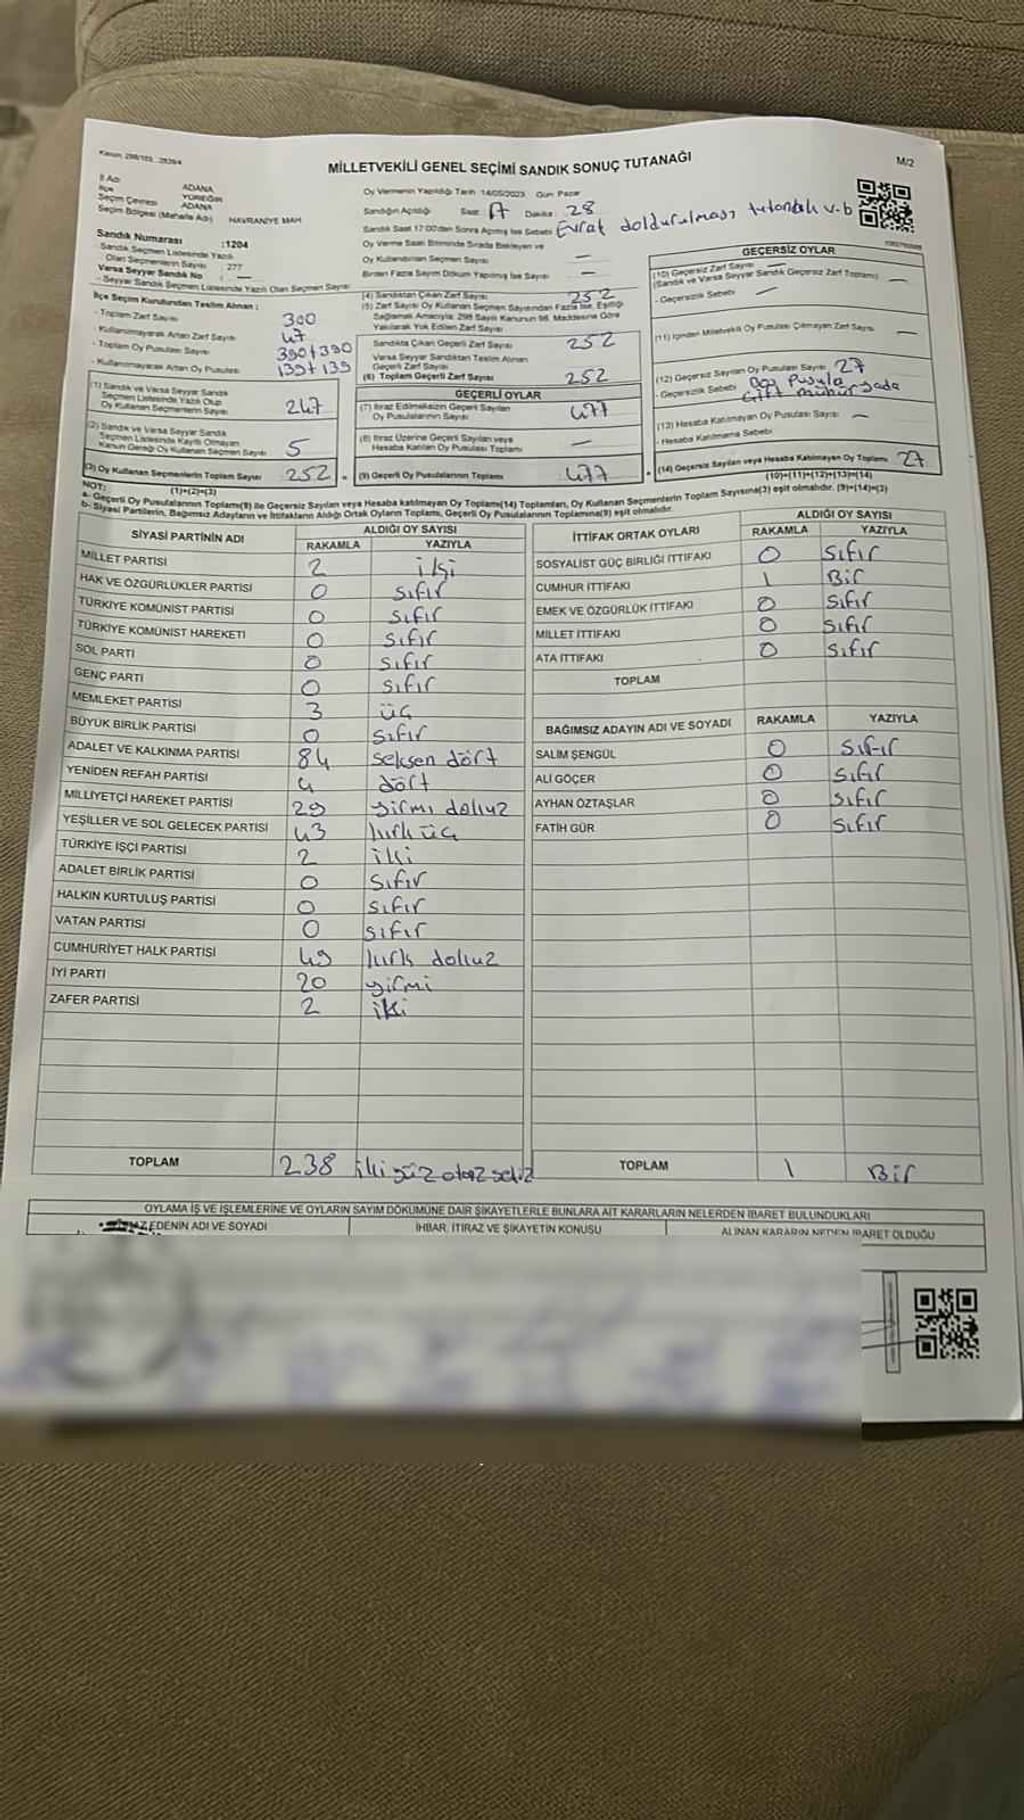 M/2
MİLLETVEKİLİ GENEL SEÇİMİ SANDIK SONUÇ TUTANAĞI
İl Adı ADANA
İlçe YÜREĞİR
Seçim Çevresi ADANA
Seçim Bölgesi (Mahalle Adı) HAVRANİYE MAH
Sandık Numarası :1204
Sandık Seçmen Listesinde Yazılı
Olan Seçmenlerin Sayısı 277
Varsa Seyyar Sandık No : —
- Seyyar Sandık Seçmen Listesinde Yazılı Olan Seçmen Sayısı
Oy Vermenin Yapıldığı Tarih 14/05/2023 Gün Pazar
Sandığın Açıldığı Saat 17 Dakika 28
Sandık Saat 17:00'den Sonra Açılmış İse Sebebi Evrat doldurulması tutanak v.b
Oy Verme Saati Bitiminde Sırada Bekleyen ve
Oy Kullandırılan Seçmen Sayısı —
Birden Fazla Sayım Döküm Yapılmış İse Sayısı —
İlçe Seçim Kurulundan Teslim Alınan :
- Toplam Zarf Sayısı 300
- Kullanılmayarak Artan Zarf Sayısı 47
- Toplam Oy Pusulası Sayısı 390+390
- Kullanılmayarak Artan Oy Pusulası 139+139
(1) Sandık ve Varsa Seyyar Sandık
Seçmen Listesinde Yazılı Olup
Oy Kullanan Seçmenlerin Sayısı 247
(2) Sandık ve Varsa Seyyar Sandık
Seçmen Listesinde Kayıtlı Olmayan
Kanun Gereği Oy Kullanan Seçmen Sayısı 5
(3) Oy Kullanan Seçmenlerin Toplam Sayısı 252
(1)+(2)=(3)
(4) Sandıktan Çıkan Zarf Sayısı 252
(5) Zarf Sayısı Oy Kullanan Seçmen Sayısından Fazla İse, Eşitliği
Sağlamak Amacıyla; 298 Sayılı Kanunun 98. Maddesine Göre
Yakılarak Yok Edilen Zarf Sayısı
Sandıkta Çıkan Geçerli Zarf Sayısı 252
Varsa Seyyar Sandıktan Teslim Alınan
Geçerli Zarf Sayısı
(6) Toplam Geçerli Zarf Sayısı 252
GEÇERLİ OYLAR
(7) İtiraz Edilmeksizin Geçerli Sayılan
Oy Pusulalarının Sayısı 477
(8) İtiraz Üzerine Geçerli Sayılan veya
Hesaba Katılan Oy Pusulası Toplamı —
(9) Geçerli Oy Pusulalarının Toplamı 477
GEÇERSİZ OYLAR
(10) Geçersiz Zarf Sayısı
(Sandık ve Varsa Seyyar Sandık Geçersiz Zarf Toplamı)
- Geçersizlik Sebebi —
(11) İçinden Milletvekili Oy Pusulası Çıkmayan Zarf Sayısı —
(12) Geçersiz Sayılan Oy Pusulası Sayısı 27
- Geçersizlik Sebebi Boş Pusula yada
Çift mühür
(13) Hesaba Katılmayan Oy Pusulası Sayısı —
- Hesaba Katılmama Sebebi
(14) Geçersiz Sayılan veya Hesaba Katılmayan Oy Toplamı 27
(10)+(11)+(12)+(13)=(14)
NOT:
a- Geçerli Oy Pusulalarının Toplamı(9) ile Geçersiz Sayılan veya Hesaba katılmayan Oy Toplamı(14) Toplamları, Oy Kullanan Seçmenlerin Toplam Sayısına(3) eşit olmalıdır. (9)+(14)=(3)
b- Siyasi Partilerin, Bağımsız Adayların ve İttifakların Aldığı Ortak Oyların Toplamı, Geçerli Oy Pusulalarının Toplamına(9) eşit olmalıdır.
SİYASİ PARTİNİN ADI ALDIĞI OY SAYISI
RAKAMLA YAZIYLA
MİLLET PARTİSİ 2 iki
HAK VE ÖZGÜRLÜKLER PARTİSİ 0 sıfır
TÜRKİYE KOMÜNİST PARTİSİ 0 sıfır
TÜRKİYE KOMÜNİST HAREKETİ 0 sıfır
SOL PARTİ 0 sıfır
GENÇ PARTİ 0 sıfır
MEMLEKET PARTİSİ 3 üç
BÜYÜK BİRLİK PARTİSİ 0 sıfır
ADALET VE KALKINMA PARTİSİ 84 seksen dört
YENİDEN REFAH PARTİSİ 4 dört
MİLLİYETÇİ HAREKET PARTİSİ 29 yirmi dokuz
YEŞİLLER VE SOL GELECEK PARTİSİ 43 kırk üç
TÜRKİYE İŞÇİ PARTİSİ 2 iki
ADALET BİRLİK PARTİSİ 0 sıfır
HALKIN KURTULUŞ PARTİSİ 0 sıfır
VATAN PARTİSİ 0 sıfır
CUMHURİYET HALK PARTİSİ 49 kırk dokuz
İYİ PARTİ 20 yirmi
ZAFER PARTİSİ 2 iki
TOPLAM 238 iki yüz otuz sekiz
İTTİFAK ORTAK OYLARI ALDIĞI OY SAYISI
RAKAMLA YAZIYLA
SOSYALİST GÜÇ BİRLİĞİ İTTİFAKI 0 sıfır
CUMHUR İTTİFAKI 1 Bir
EMEK VE ÖZGÜRLÜK İTTİFAKI 0 sıfır
MİLLET İTTİFAKI 0 sıfır
ATA İTTİFAKI 0 sıfır
TOPLAM
BAĞIMSIZ ADAYIN ADI VE SOYADI RAKAMLA YAZIYLA
SALİM ŞENGÜL 0 sıfır
ALİ GÖÇER 0 sıfır
AYHAN ÖZTAŞLAR 0 sıfır
FATİH GÜR 0 sıfır
TOPLAM 1 Bir
OYLAMA İŞ VE İŞLEMLERİNE VE OYLARIN SAYIM DÖKÜMÜNE DAİR ŞİKAYETLERLE BUNLARA AİT KARARLARIN NELERDEN İBARET BULUNDUKLARI
EDENİN ADI VE SOYADI İHBAR, İTİRAZ VE ŞİKAYETİN KONUSU ALINAN KARARIN NEDEN İBARET OLDUĞU